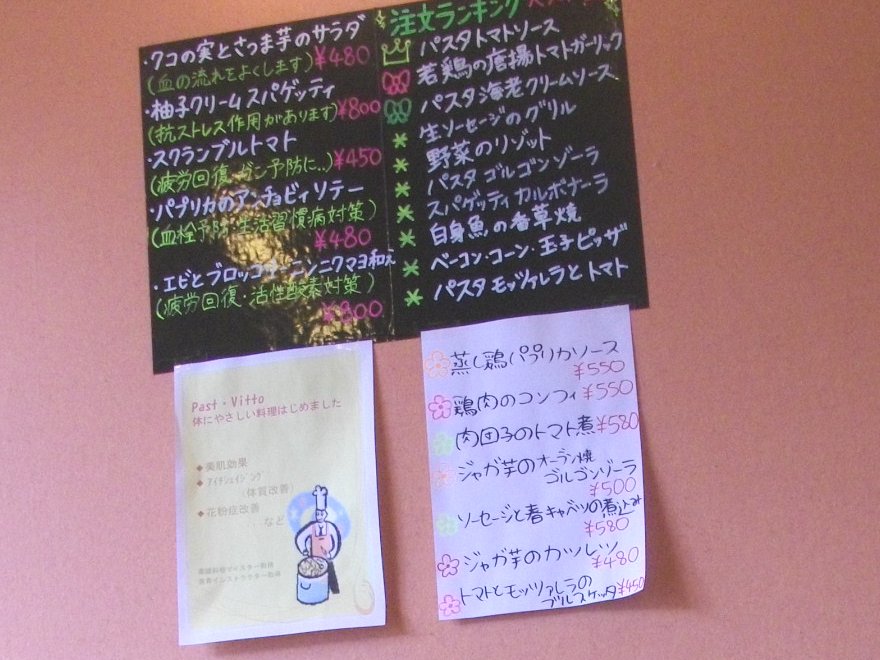 ・クコの実とさつま芋のサラダ
(血の流れをよくします) ¥480
・柚子クリームスパゲッティ
(抗ストレス作用があります) ¥800
・スクランブルトマト
(疲労回復・ガン予防に..) ¥450
・パプリカのアンチョビィソテー
(血栓予防・生活習慣病対策)
¥480
・エビとブロッコリーニンニクマヨ和え
(疲労回復・活性酸素対策)
¥800
注文ランキング
パスタトマトソース
若鶏の唐揚トマトガーリック
パスタ海老クリームソース
生ソーセージのグリル
野菜のリゾット
パスタゴルゴンゾーラ
スパゲッティカルボナーラ
白身魚の香草焼
ベーコン・コーン・玉子ピッザ
パスタモッツァレラとトマト
Past・Vitto
体にやさしい料理はじめました
◆美肌効果
◆アイチェイジング
(体質改善)
◆花粉症改善
・・・など
蒸し鶏パプリカソース
¥550
鶏肉のコンフィ ¥550
肉団子のトマト煮 ¥580
ジャガ芋のオーブン焼
ゴルゴンゾーラ
¥500
ソーセージと春キャベツの煮込み
¥580
ジャガ芋のカツレツ
¥480
トマトとモッツァレラの
ブルスケッタ ¥450